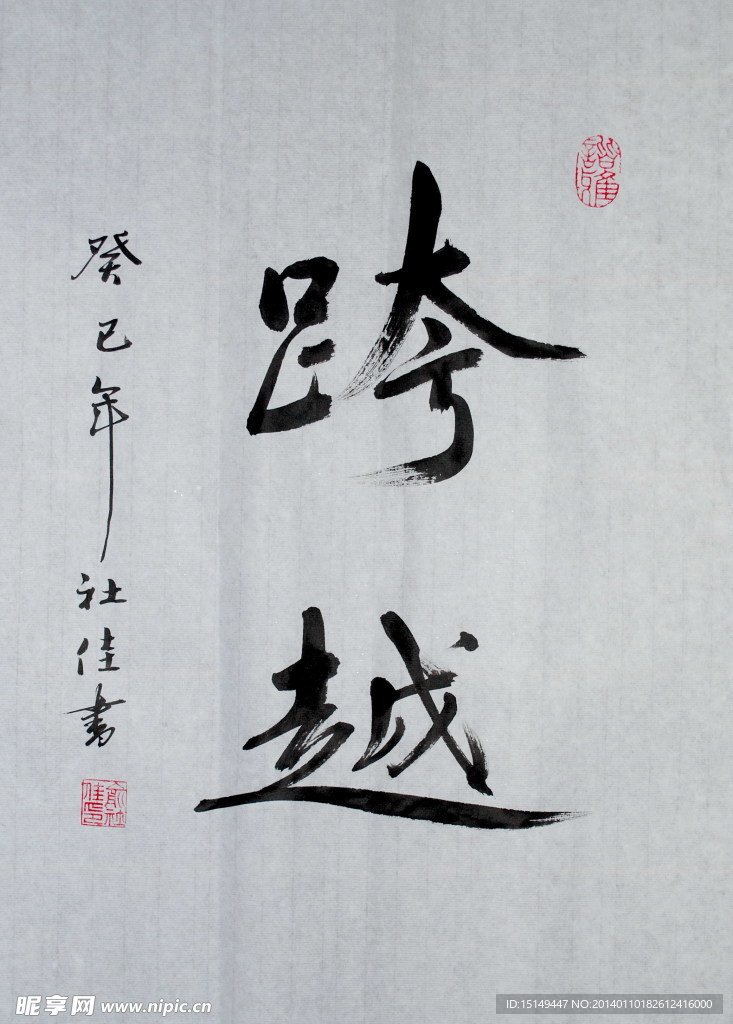 跨越
癸巳年社佳書
諧雅
俞社佳印
昵享网 www.nipic.cn
ID:15149447 NO:20140110182612416000